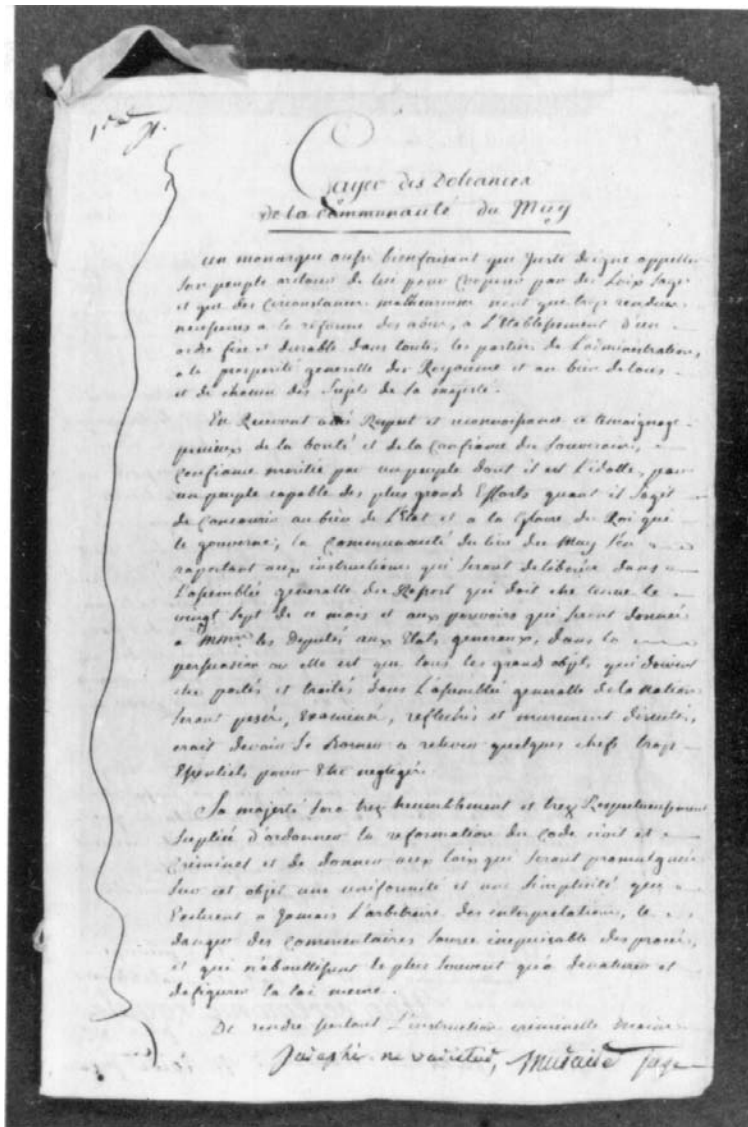 Cayer des Doleances
de la Communauté du Muy
un monarque aussi bienfaisant que Juste daigne appeller
son peuple autour de lui pour s'occuper par des Loix sages
et que des Circonstances malheureuses n'ont que trop rendües
necessaires a la reforme des abus, a L'Etablissement d'un
ordre fixe et durable dans toutes les parties de L'administration,
a la prosperité generalle du Royaume et au bien de tous
et de chacun des Sujets de Sa majesté.
En Recevant avec Respect et reconnoissance ce temoignage
precieux de la bonté et de la Confiance du Souverain,
Confiance meritée par un peuple dont il est L'idolle, par
un peuple capable des plus grands Efforts quant il Sagit
de Concourir au bien de L'Etat et a la Gloire du Roi qui
le gouverne; la Communauté du lieu du Muy s'en
raportant aux instructions qui seront deliberées dans
L'assemblée generalle du Ressort qui doit etre tenue le
vingt sept de ce mois et aux pouvoirs qui seront donnés
a les Deputés aux Etats generaux, dans la
persuasion ou elle est que tous les grands objets qui doivent
etre portés et traités dans L'assemblée generalle de la Nation
seront pesés, Examinés, reflechis et murement discutés,
croit devoir se Borner a relever quelques chefs trop
Essentiels pour Etre negligés.
Sa majesté sera trez humblement et trez Respectueusement
Supliée d'ordonner la reformation du Code civil et
Criminel et de donner aux loix qui seront promulguées
sur cet objet une uniformité et une Simplicité qui
Excluent a Jamais L'arbitraire des interpretations, le
danger des Commentaires source inepuisable des procés,
et qui n'aboutissent le plus souvent qu'a denaturer et
defigurer la loi meme.
De rendre partout L'instruction criminelle
ne varietur, Juge